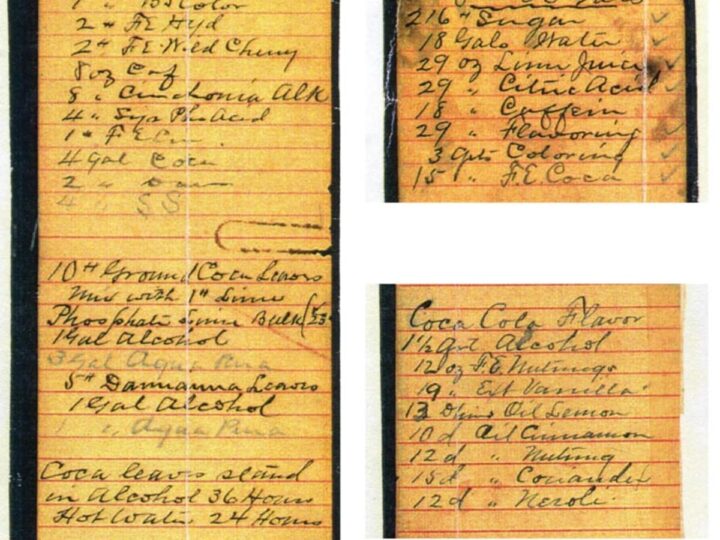 Color
2 " F E Hyd
2 " F E Wild Cherry
8 oz Caf
8 " Cinchonia Alk
4 " Syr Ph Acid
1 " F E
4 Gal Coca
2 "
4 " S S
10# Ground Coca Leaves
Mix with 1# Lime
Phosphate Lime Bulk
1 Gal Alcohol
3 Gal Aqua Pura
5# Dammanna Leaves
1 Gal Alcohol
1 " Aqua Pura
Coca leaves stand
in Alcohol 36 Hours
Hot Water 24 Hours
216# Sugar
18 Gals Water
29 oz Lime Juice
29 " Citric Acid
18 " Caffein
29 " Flavoring
3 Gals Coloring
15 " F. E. Coca
Coca Cola Flavor
1½ Alcohol
12 oz F. E. Nutmegs
19 " Ext Vanilla
13 Oil Lemon
10 d Oil Cinnamon
12 d " Nutmeg
15 d " Coriander
12 d " Neroli